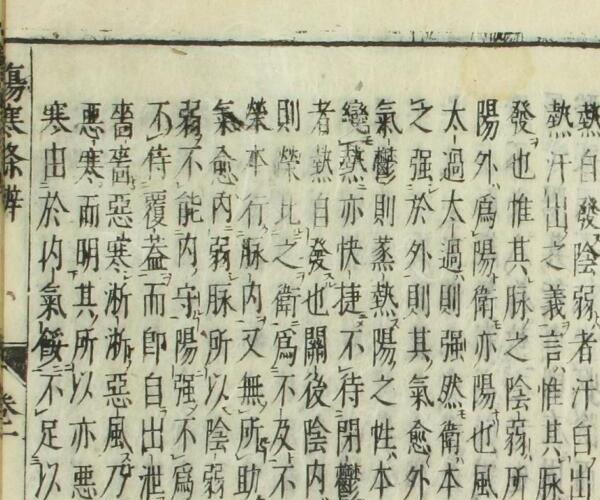 熱自發陰弱者汗自出
熱汗出之義言惟其脉
發也惟其脉之陰弱所
陽外爲陽衛亦陽也風
太過太過則强然衛本
之强於外則其氣愈外
氣鬱則蒸熱陽之性本
變熱亦快捷不待閉鬱
者熱自發也關後陰内
則榮比之衛爲不及不
榮本行脉内又無所助
氣愈内弱脉所以陰弱
弱不能内守陽强不爲
不待覆葢而卽自出泄
嗇嗇惡寒淅淅惡風乃
惡寒而明其所以亦惡
寒出於内氣餒不足以
傷寒條辨
卷一